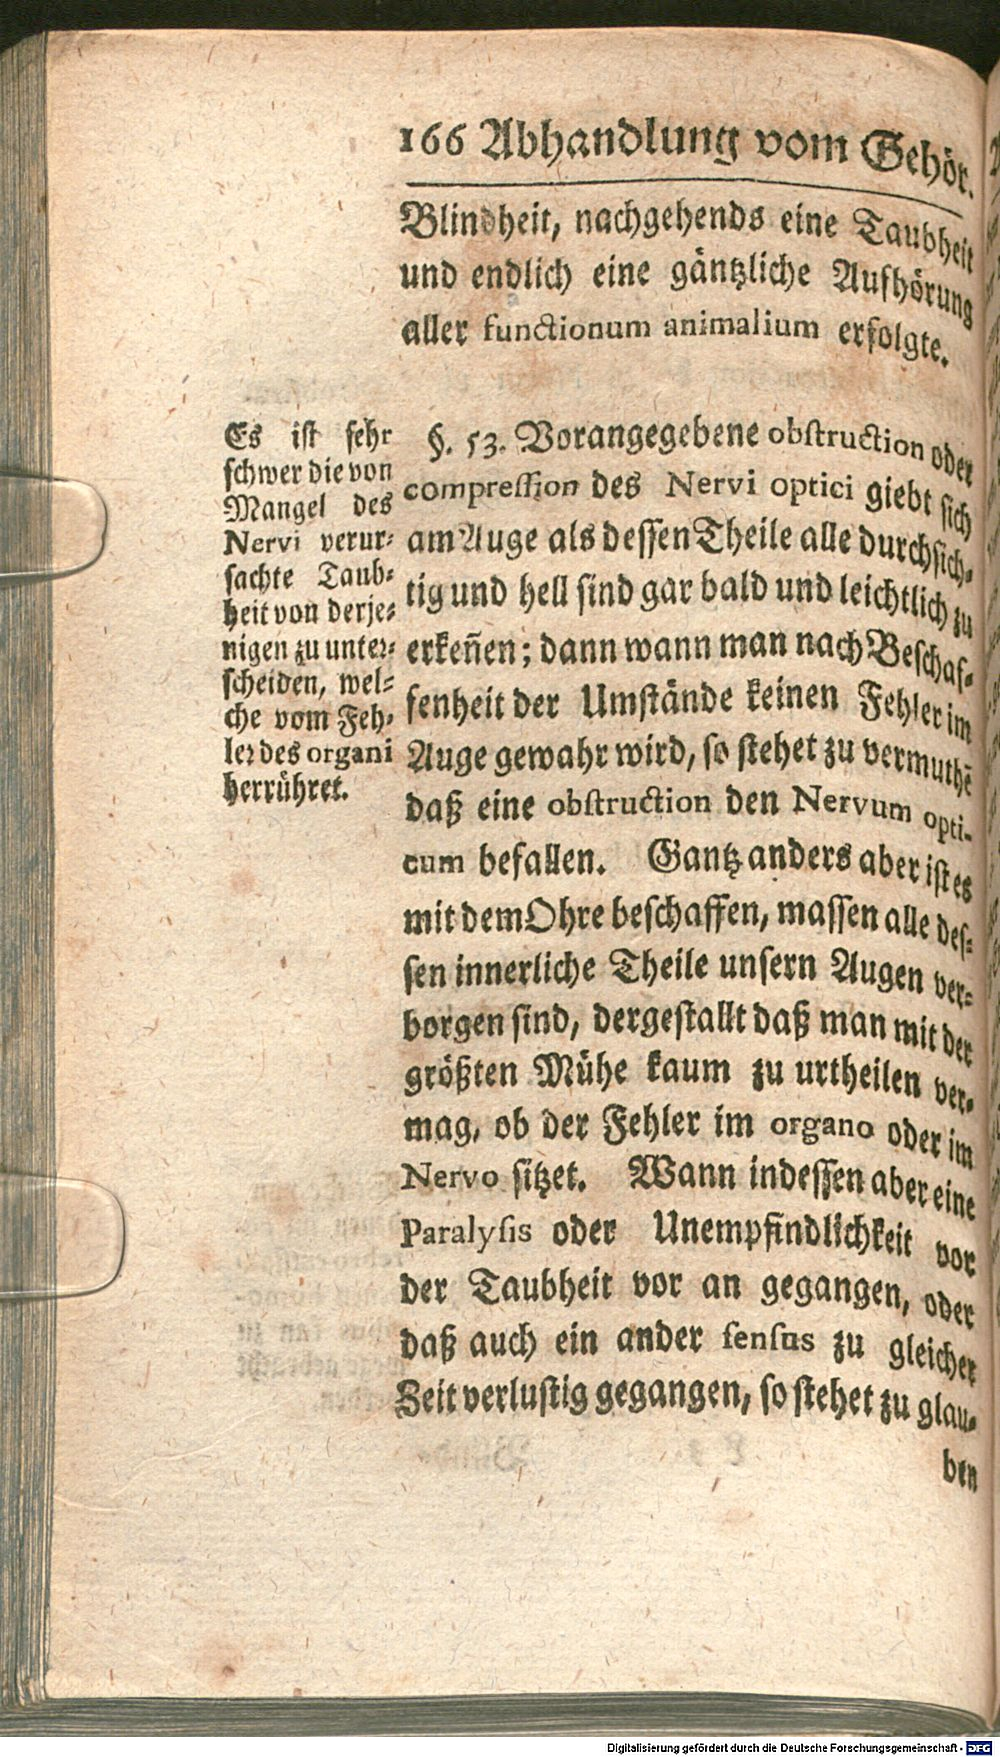 166 Abhandlung vom Gehör.
Blindheit, nachgehends eine Taubheit
und endlich eine gäntzliche Aufhörung
aller functionum animalium erfolgte.
Es ist sehr
schwer die von
Mangel des
Nervi verur-
sachte Taub-
heit von derje-
nigen zu unter-
scheiden, wel-
che vom Feh-
ler des organi
herrühret.
§. 53. Vorangegebene obstruction oder
compression des Nervi optici giebt sich
am Auge als dessen Theile alle durchsich-
tig und hell sind gar bald und leichtlich zu
erkeñen; dann wann man nach Beschaf-
fenheit der Umstände keinen Fehler im
Auge gewahr wird, so stehet zu vermuthē
daß eine obstruction den Nervum opti-
cum befallen. Gantz anders aber ist es
mit dem Ohre beschaffen, massen alle des-
sen innerliche Theile unsern Augen ver-
borgen sind, dergestallt daß man mit der
größten Mühe kaum zu urtheilen ver-
mag, ob der Fehler im organo oder im
Nervo sitzet. Wann indessen aber eine
Paralysis oder Unempfindlichkeit vor
der Taubheit vor an gegangen, oder
daß auch ein ander sensus zu gleicher
Zeit verlustig gegangen, so stehet zu glau-
ben
Digitalisierung gefördert durch die Deutsche Forschungsgemeinschaft - DFG